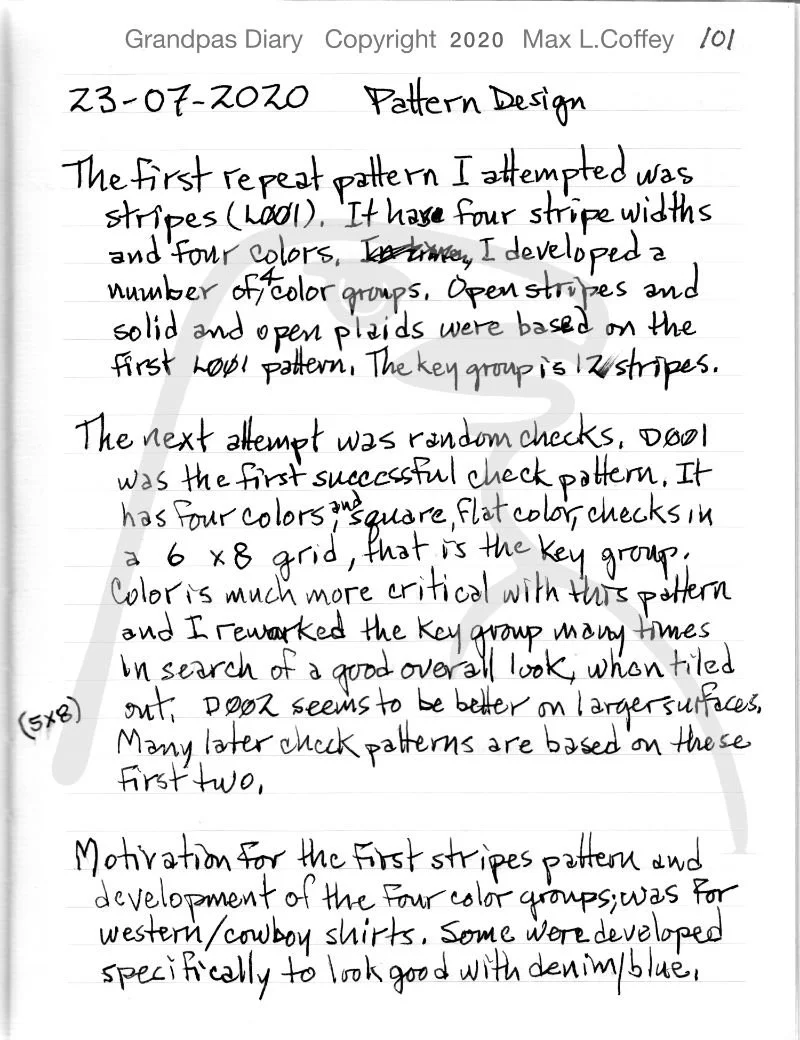 Grandpas Diary Copyright 2020 Max L.Coffey 101
23-07-2020 Pattern Design
The first repeat pattern I attempted was
stripes (LØØ1). It have four stripe widths
and four colors. I developed a
number of 4 color groups. Open stripes and
solid and open plaids were based on the
first LØØ1 pattern. The key group is 12 stripes.
The next attempt was random checks. DØØ1
was the first successful check pattern. It
has four colors, and square, flat color, checks in
a 6 x8 grid, that is the key group.
Color is much more critical with this pattern
and I reworked the key group many times
in search of a good overall look, when tiled
out. DØØ2 seems to be better on larger surfaces.
(5x8)
Many later check patterns are based on these
first two.
Motivation for the first stripes pattern and
development of the four color groups; was for
western/cowboy shirts. Some were developed
specifically to look good with denim/blue.